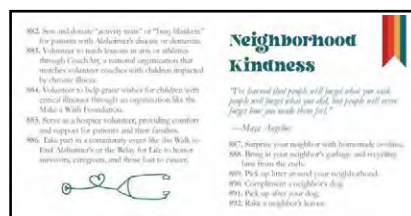 882. Sew and donate "activity mats" or "busy blankets"
for patients with Alzheimer's disease or dementia.
883. Volunteer to teach lessons in arts or athletics
through CoachArt, a national organization that
matches volunteer coaches with children impacted
by chronic illness.
884. Volunteer to help grant wishes for children with
critical illnesses through an organization like the
Make a Wish Foundation.
885. Serve as a hospice volunteer, providing comfort
and support for patients and their families.
886. Take part in a community event like the Walk to
End Alzheimer's or the Relay for Life to honor
survivors, caregivers, and those lost to cancer.
Neighborhood
Kindness
"I've learned that people will forget what you said,
people will forget what you did, but people will never
forget how you made them feel."
—Maya Angelou
887. Surprise your neighbor with homemade cookies.
888. Bring in your neighbor's garbage and recycling
bins from the curb.
889. Pick up litter around your neighborhood.
890. Compliment a neighbor's dog.
891. Pick up after your dog.
892. Rake a neighbor's leaves.